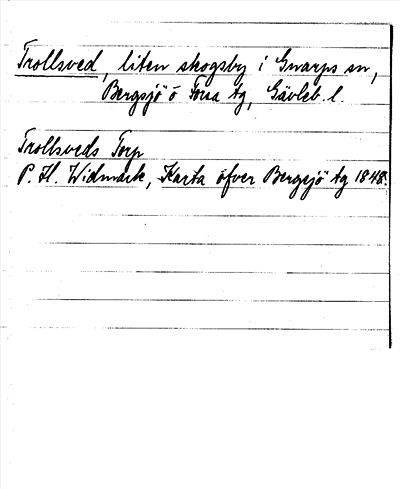 Trollsved, liten skogsby i Gnarps sn,
Bergsjö o Forsa tg, Gävleb. l.
Trollsveds Torp
P. H. Widmark, Karta öfver Bergsjö tg 1848.